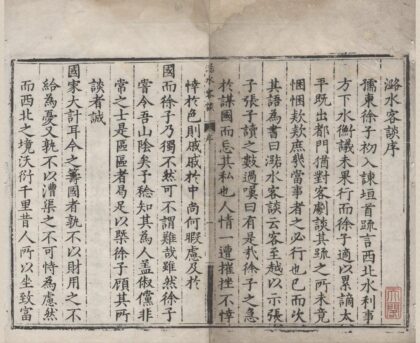 潞水客談序
孺東徐子初入諫垣首疏言西北水利事
方下水衡議未果行而徐子適以累謫太
平既出都門猶對客劇談其疏之所未竟
悃悃欵欵庶幾當事者之必行也已而次
其語為書曰潞水客談云客至越以示張
子張子讀之數過嘆曰有是哉徐子之急
於謀國而忘其私也人情一遭摧挫不悻
潞水客談 序 一
悻於色則戚戚於中尚何暇慮及於
國而徐子乃獨不然可不謂難哉雖然徐子
嘗令吾山陰矣予稔知其為人蓋俶儻非
常之士是區區者曷足以槩徐子顧其所
談者誠
國家大計耳今之籌國者孰不以財用之不
給為憂又孰不以漕渠之不可恃為慮然
而西北之境沃衍千里昔人所以坐致富